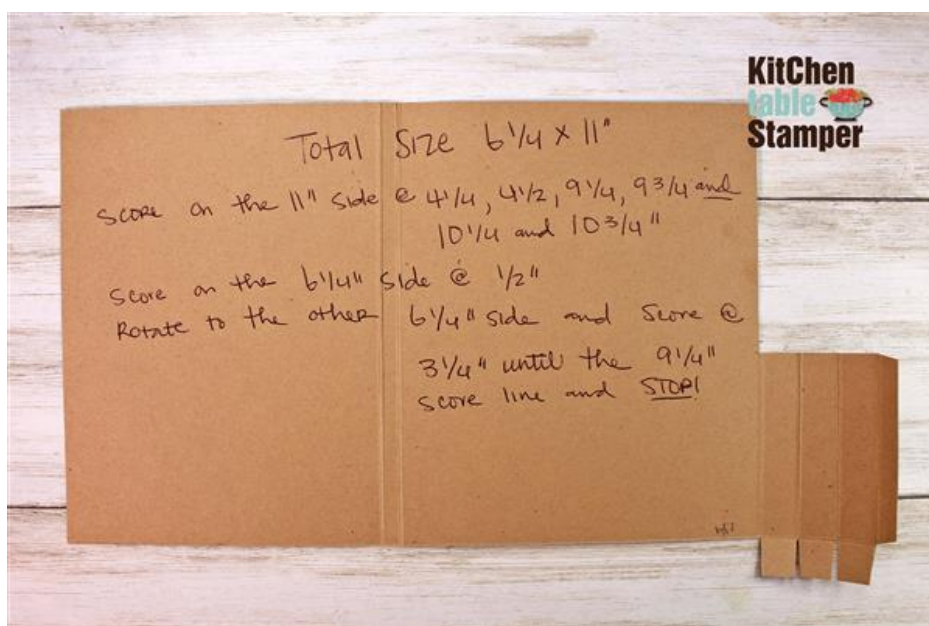 KitChen
table
Stamper
Total Size 6 1/4 x 11"
Score on the 11" side @ 4 1/4, 4 1/2, 9 1/4, 9 3/4 and
10 1/4 and 10 3/4"
Score on the 6 1/4" side @ 1/2"
Rotate to the other 6 1/4" side and Score @
3 1/4" until the 9 1/4"
score line and STOP!